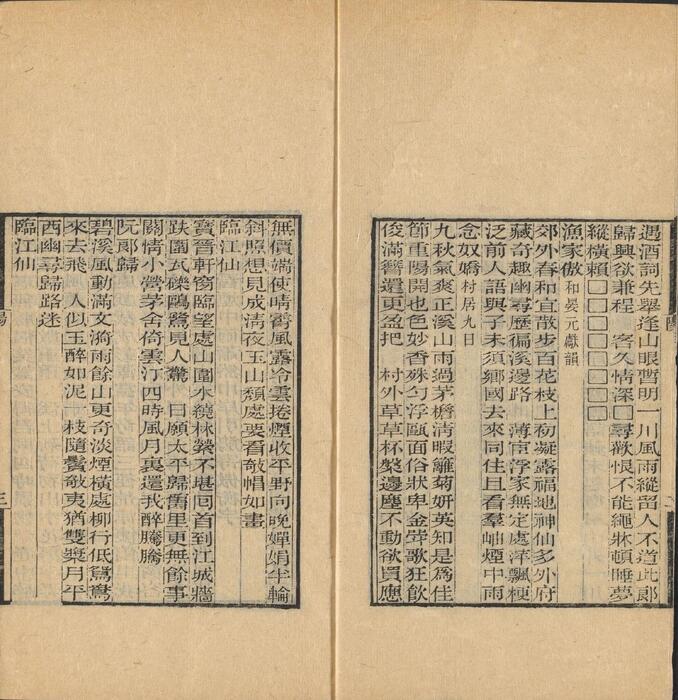 遇酒詞先舉逢山眼暫明一川風雨縱留人不道此郎
歸興欲兼程　客久情深□尋歡恨不能繩牀頓睡夢
縱橫賴□□□□□□
漁家傲和晏元獻韻
郊外春和宜散步百花枝上初凝露福地神仙多外府
藏奇趣幽尋歷徧溪邊路　薄宦浮家無定處萍飄梗
泛前人語與子未須鄉國去來同住且看羣岫煙中雨
念奴嬌村居九日
九秋氣爽正溪山雨過茅檐清暇籬菊妍英知是為佳
節重陽開也色妙香殊匀浮甌面俗狀卑金斝歌狂飲
俊滿簪還更盈把　村外草草杯槃邊塵不動欲買應
無價端使晴霽風露冷雲捲煙收平野向晚嬋娟半輪
斜照想見成清夜玉山頹處要看敧帽如畫
臨江仙
寶晉軒窗臨望處山圍水繞林縈不堪囘首到江城牆
趺圍瓦礫鷗鷺見人驚　日願太平歸舊里更無餘事
關情小營茅舍倚雲汀四時風月裏還我醉騰騰
阮郎歸
碧溪風動滿文漪雨餘山更奇淡煙橫處柳行低鴛鴦
來去飛　人似玉醉如泥一枝隨鬢敧夷猶雙槳月平
西幽尋歸路迷
臨江仙